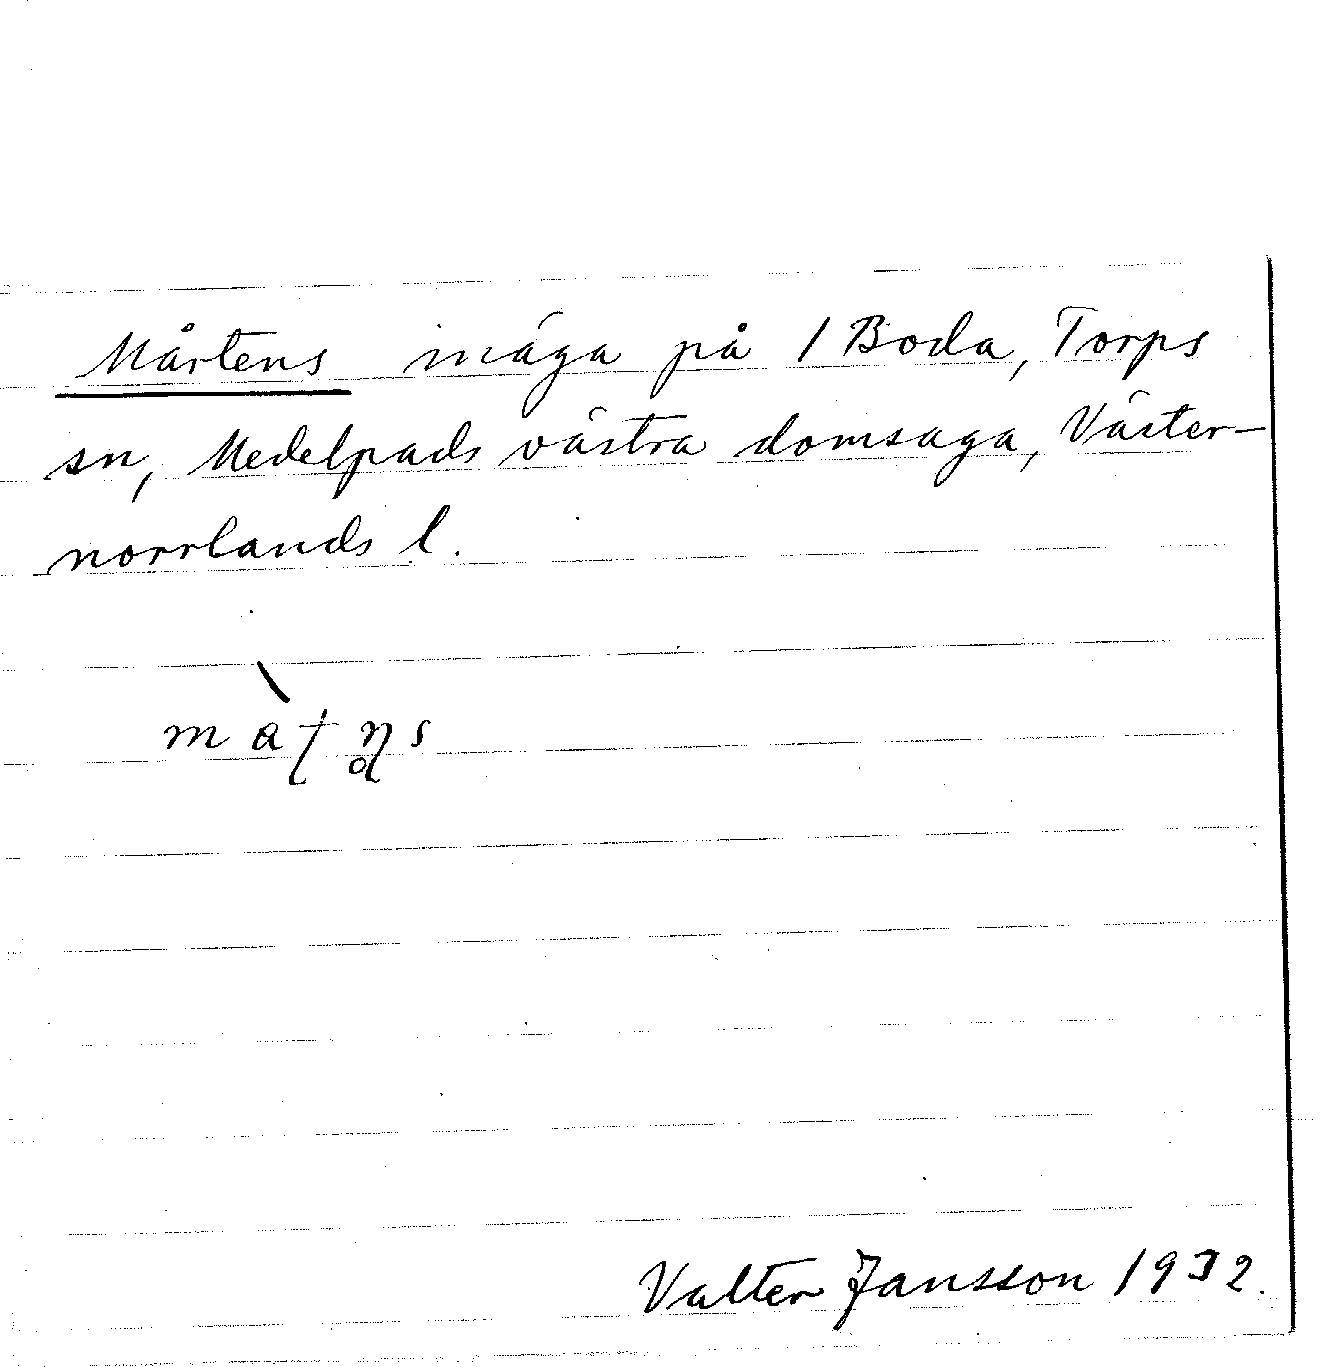 Mårtens mäga på 1 Boda, Torps
sn, Medelpads västra domsaga, Väster-
norrlands l.
m à ʈ ɳ̥ s
Valter Jansson 1932.